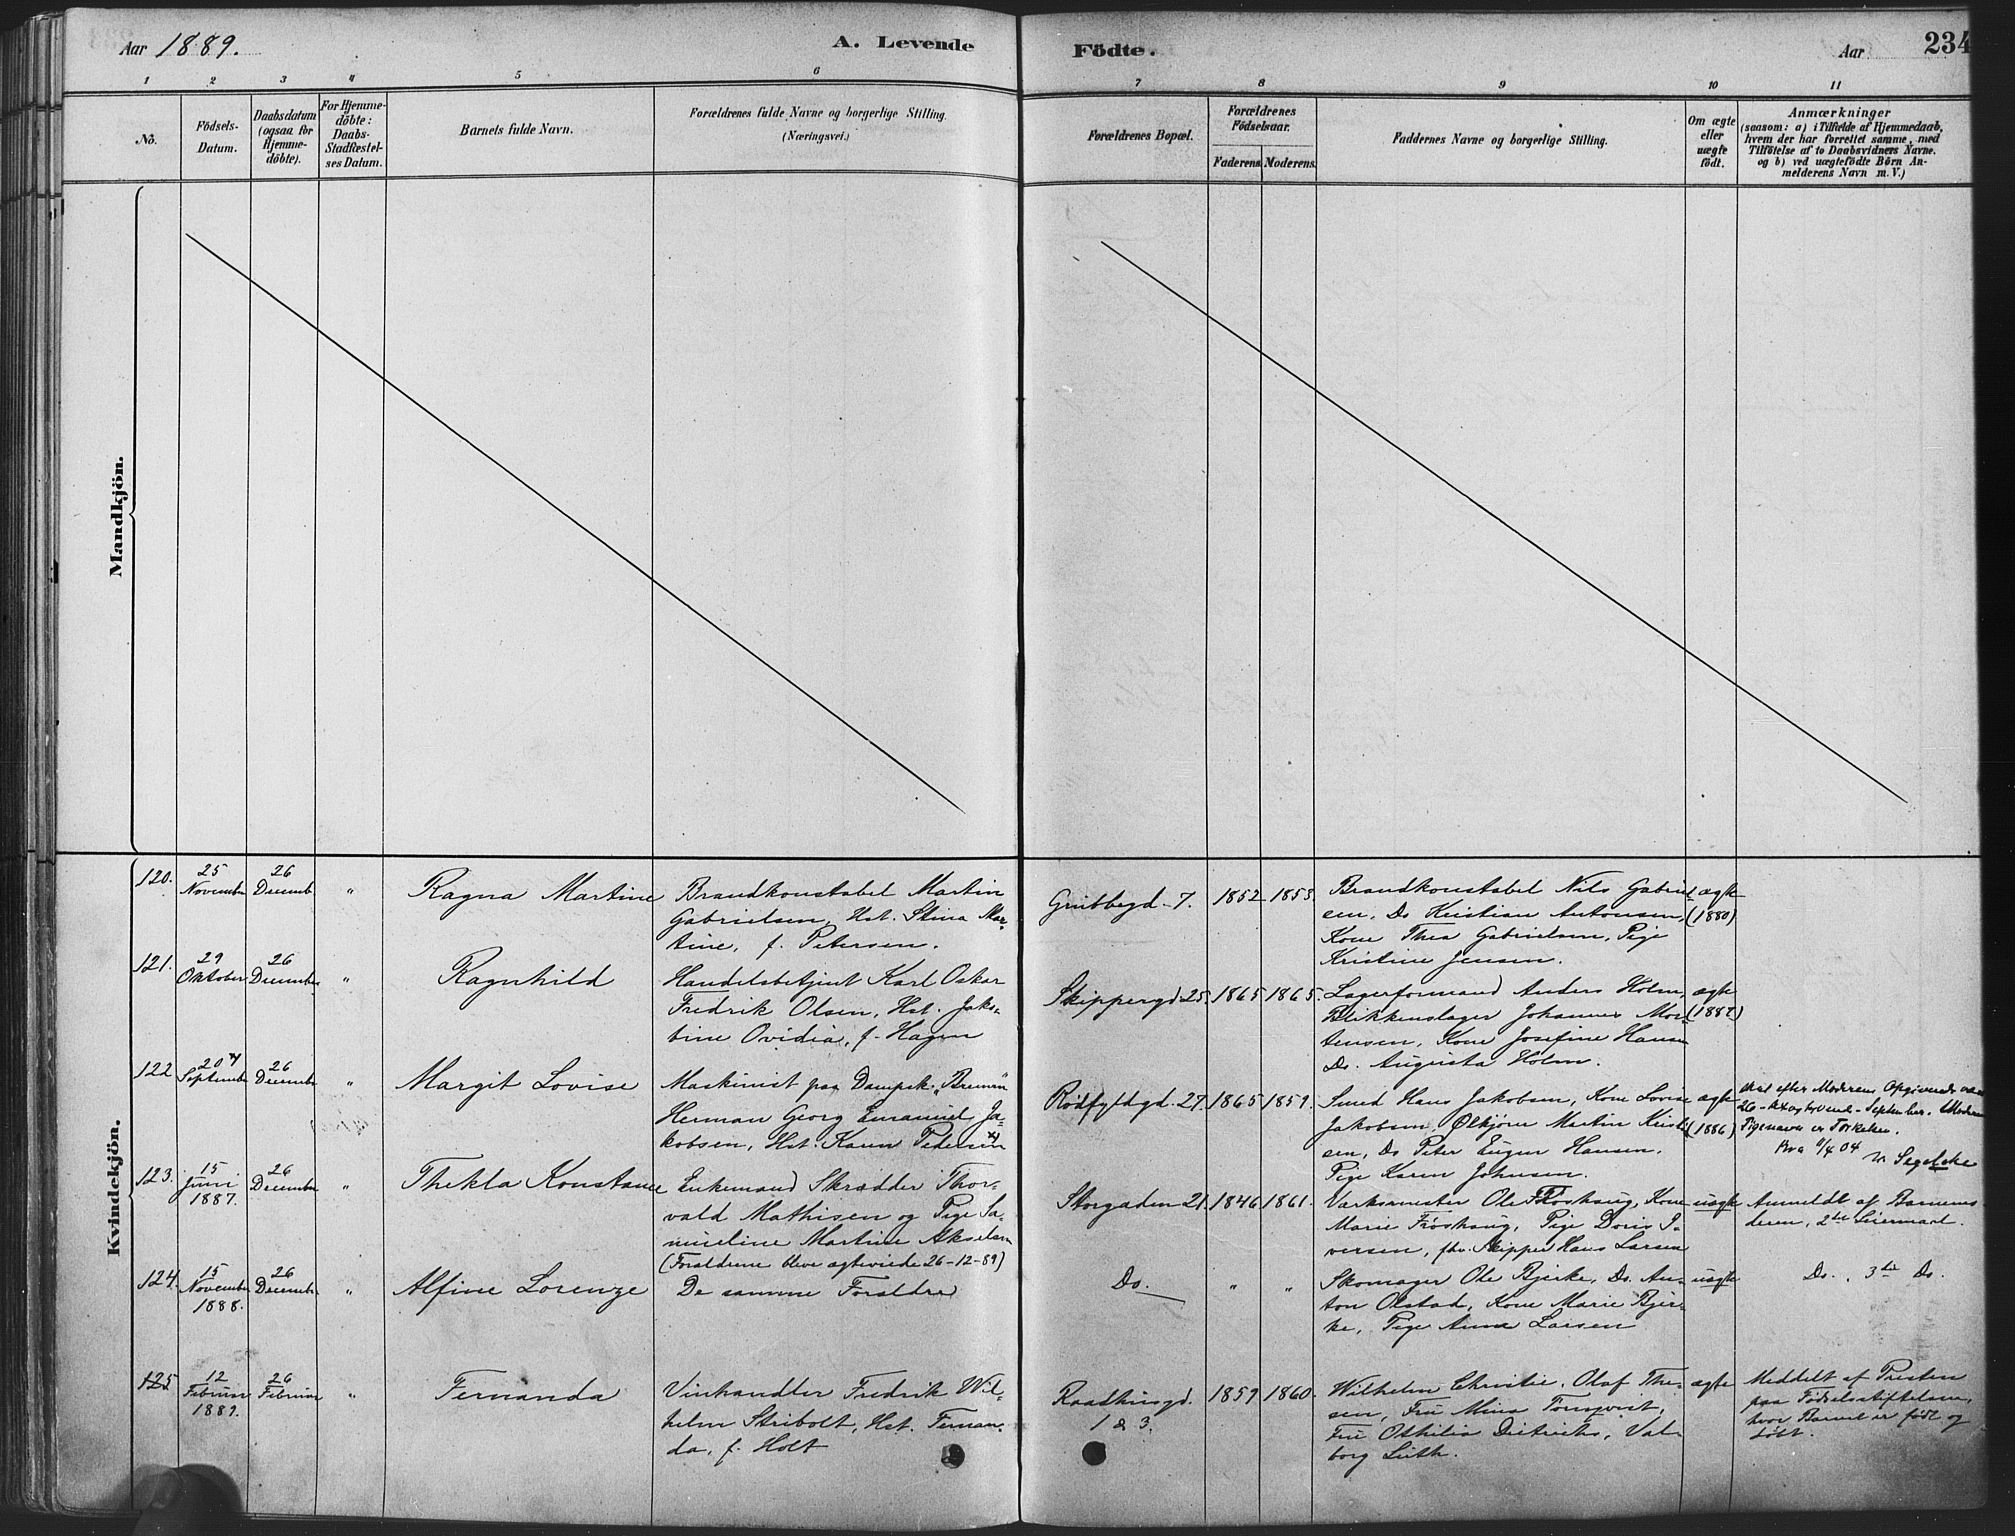 Aar 1889.
A. Levende
Födte.
Aar
234
1 2 3 4 5 6 7 8 9 10 11
No.
Födsels-
Datum.
Daabsdatum
(ogsaa for
Hjemme-
döbte).
For Hjemme-
döbte:
Daabs-
Stadfæstel-
ses Datum.
Barnets fulde Navn.
Forældrenes fulde Navne og borgerlige Stilling.
(Næringsvei.)
Forældrenes Bopæl.
Forældrenes
Födselsaar.
Faderens. Moderens.
Faddernes Navne og borgerlige Stilling.
Om ægte
eller
uægte
födt.
Anmærkninger
(saasom: a) i Tilfælde af Hjemmedaab,
hvem der har forrettet samme, med
Tilföielse af to Daabsvidners Navne.
og b) ved uægtefödte Börn An-
melderens Navn m. V.)
Mandkjön.
Kvindekjön.
120.
25
November
26
Decemb
"
Ragna Martine
Brandkonstabel Martin
Gabrielsen, Hst. Stina Mar-
tine, f. Petersen.
Grubbegd. 7.
1852
1853
Brandkonstabel Nils Gabriel-
sen, Do Kristian Antonsen,
Kone Thea Gabrielsen, Pige
Kristine Jensen.
ægte
(1880)
121.
29
Oktober
26
December
"
Ragnhild
Handelsbetjent Karl Oskar
Fredrik Olsen, Hst. Jako-
bine Ovidia, f. Hagen
Skippergd 25.
1865
1865.
Lagerformand Anders Holm,
Blikkenslager Johannes Mor-
tensen, Kone Josefine Hansen
Do. Augusta Holm.
ægte
(1887)
122
20
September
26
December
"
Margit Lovise
Maskinist paa Dampsk. "Bremen"
Herman Georg Emanuel Ja-
kobsen, Hst. Karen Petersen
Rødfyldgd. 27.
1865
1859.
Smed Hans Jakobsen, Kone Lovise
Jakobsen, Ølkjører Martin Kristi-
sen, Do Peter Eugen Hansen.
Pige Karen Johnsen.
ægte
(1886)
skal efter Moderens Opgivende være
26 - September. Moderens
Pigenavn er Torkelsen.
04
Segelcke
123.
15
Juni
1887.
26
December
"
Thekla Konstance
Enkemand Skrædder Thor-
vald Mathisen og Pige Sa-
mueline Martine Akselsen
(Forældrene bleve ægteviede 26-12-89)
Storgaden 21.
1846
1861.
Værksmester Ole Frøshaug, Kone
Marie Frøshaug, Pige Doris I-
versen, fhv. Skipper Hans Larsen
uægte
Anmeldt af Barnemo-
deren, 2det Leiermaal.
124.
15
November
1888.
26
December
"
Alfine Lorenze
De samme Forældre
Do.
"
"
Skomager Ole Bjerke, Do. An-
ton Olstad, Kone Marie Bjer-
ke, Pige Anna Larsen
uægte
Do. , 3die Do.
125
12
Februar
1889.
26
Februar
"
Fernanda
Vinhandler Fredrik Wil-
helm Stribolt, Hst. Fernan-
da, f. Holt
Raadhusgd.
1 & 3.
1859
1860.
Wilhelm Christie, Olaf The-
sen, Fru Mina Tornqvist,
Fru Othilia Dietrichs, Val-
borg Lüth.
ægte
Meddelt af Presten
paa Fødselsstiftelsen,
hvor Barnet er født og
døbt.